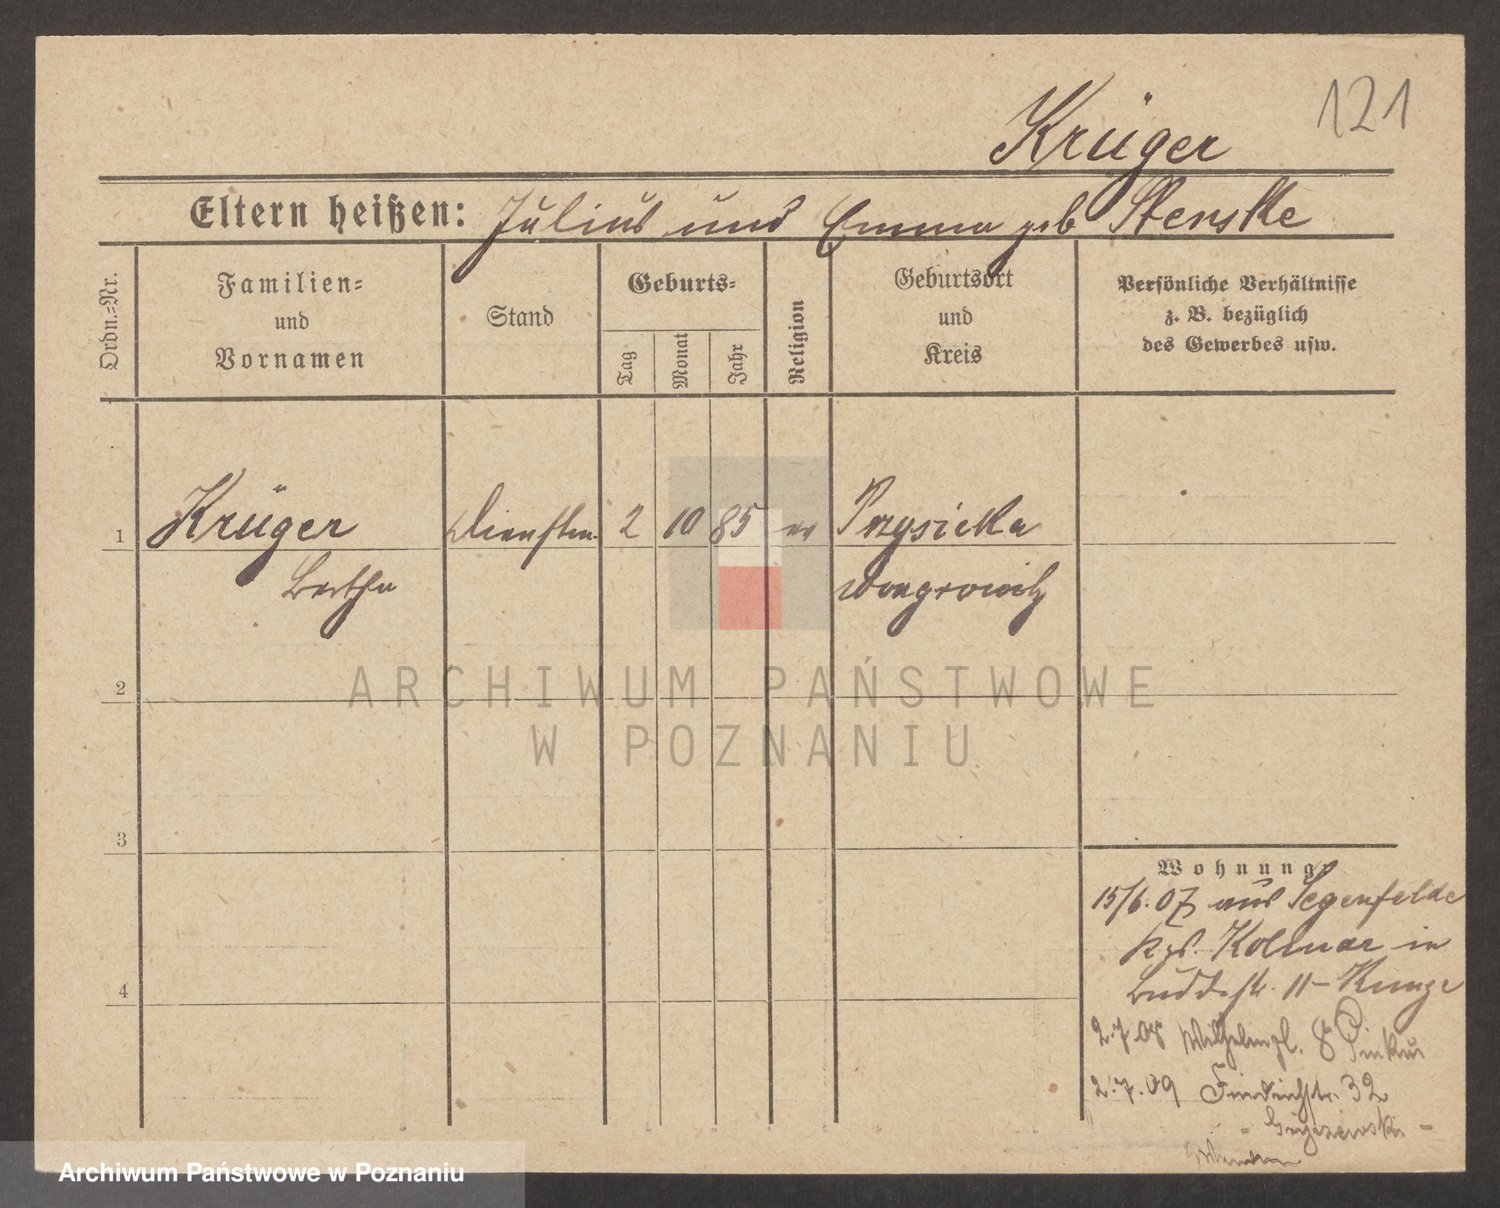 121
Krüger
Eltern heißen: Julius und Emma geb Sterske
Ordn.=Nr.
Familien=
und
Vornamen
Stand
Geburts=
Tag
Monat
Jahr
Religion
Geburtsort
und
Kreis
Persönliche Verhältnisse
z. B. bezüglich
des Gewerbes usw.
1
Krüger
Dienstm.
2
10
85
ev
Przysieka
Bertha
Wongrowitz
2
ARCHIWUM PAŃSTWOWE
W POZNANIU
3
Wohnung
15/6.07 aus Segenfelde
Krs. Kolmar in
Buddestr. 11 - Kunze
4
2.7.08 Wilhelmpl. 8 Pinkus
2.7.09 Friedrichstr. 32
Archiwum Państwowe w Poznaniu